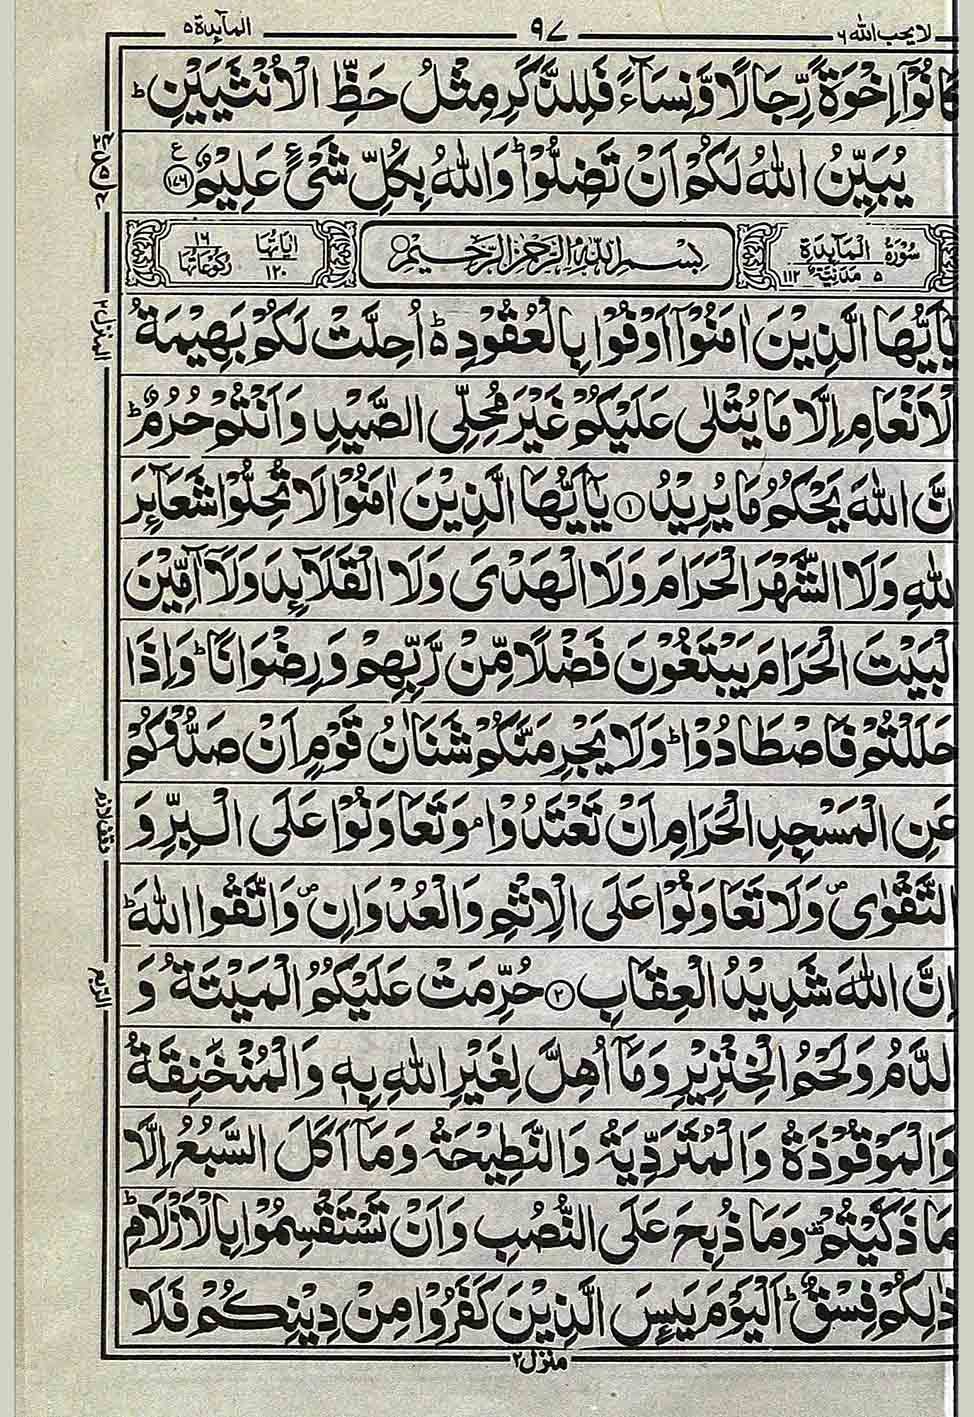 لا يحب الله ٦ ٩٧ المآىدة ٥
كَانُوْۤا اِخْوَةً رِّجَالًا وَّنِسَآءً فَلِلذَّكَرِ مِثْلُ حَظِّ الْاُنْثَيَيْنِ ؕ
يُبَيِّنُ اللّٰهُ لَكُمْ اَنْ تَضِلُّوْا ؕ وَاللّٰهُ بِكُلِّ شَيْءٍ عَلِيْمٌ ۝١٧٦
سُوْرَةُ الْمَآىِٕدَةِ ٥ مَدَنِيَّةٌ ١١٢ بِسْمِ اللّٰهِ الرَّحْمٰنِ الرَّحِيْمِ اٰيَاتُهَا ١٢٠ رُكُوْعَاتُهَا ١٦
يٰۤاَيُّهَا الَّذِيْنَ اٰمَنُوْۤا اَوْفُوْا بِالْعُقُوْدِ ؕ۬ اُحِلَّتْ لَكُمْ بَهِيْمَةُ
الْاَنْعَامِ اِلَّا مَا يُتْلٰى عَلَيْكُمْ غَيْرَ مُحِلِّي الصَّيْدِ وَاَنْتُمْ حُرُمٌ ؕ
اِنَّ اللّٰهَ يَحْكُمُ مَا يُرِيْدُ ۝١ يٰۤاَيُّهَا الَّذِيْنَ اٰمَنُوْا لَا تُحِلُّوْا شَعَآىِٕرَ
اللّٰهِ وَلَا الشَّهْرَ الْحَرَامَ وَلَا الْهَدْيَ وَلَا الْقَلَآىِٕدَ وَلَاۤ آٰمِّيْنَ
الْبَيْتَ الْحَرَامَ يَبْتَغُوْنَ فَضْلًا مِّنْ رَّبِّهِمْ وَرِضْوَانًا ؕ وَاِذَا
حَلَلْتُمْ فَاصْطَادُوْا ؕ وَلَا يَجْرِمَنَّكُمْ شَنَاٰنُ قَوْمٍ اَنْ صَدُّوْكُمْ
عَنِ الْمَسْجِدِ الْحَرَامِ اَنْ تَعْتَدُوْا ۘ وَتَعَاوَنُوْا عَلَى الْبِرِّ وَ
التَّقْوٰى ۪ وَلَا تَعَاوَنُوْا عَلَى الْاِثْمِ وَالْعُدْوَانِ ۪ وَاتَّقُوا اللّٰهَ ؕ
اِنَّ اللّٰهَ شَدِيْدُ الْعِقَابِ ۝٢ حُرِّمَتْ عَلَيْكُمُ الْمَيْتَةُ وَ
الدَّمُ وَلَحْمُ الْخِنْزِيْرِ وَمَاۤ اُهِلَّ لِغَيْرِ اللّٰهِ بِهٖ وَالْمُنْخَنِقَةُ
وَالْمَوْقُوْذَةُ وَالْمُتَرَدِّيَةُ وَالنَّطِيْحَةُ وَمَاۤ اَكَلَ السَّبُعُ اِلَّا
مَا ذَكَّيْتُمْ ۫ وَمَا ذُبِحَ عَلَى النُّصُبِ وَاَنْ تَسْتَقْسِمُوْا بِالْاَزْلَامِ ؕ
ذٰلِكُمْ فِسْقٌ ؕ اَلْيَوْمَ يَىِٕسَ الَّذِيْنَ كَفَرُوْا مِنْ دِيْنِكُمْ فَلَا
منزل ٢
المنزل ٢
وقف لازم